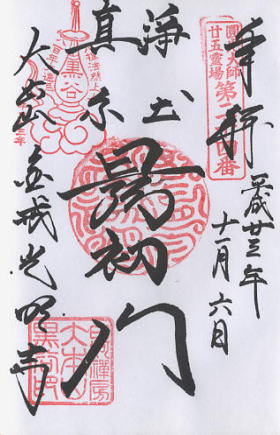 奉拝
平成廿三年
十一月六日
圓光大師
廿五霊場
第二十四番
淨土
真宗
最初門
大本山
金戒光明寺
黒谷
大本山
黒谷